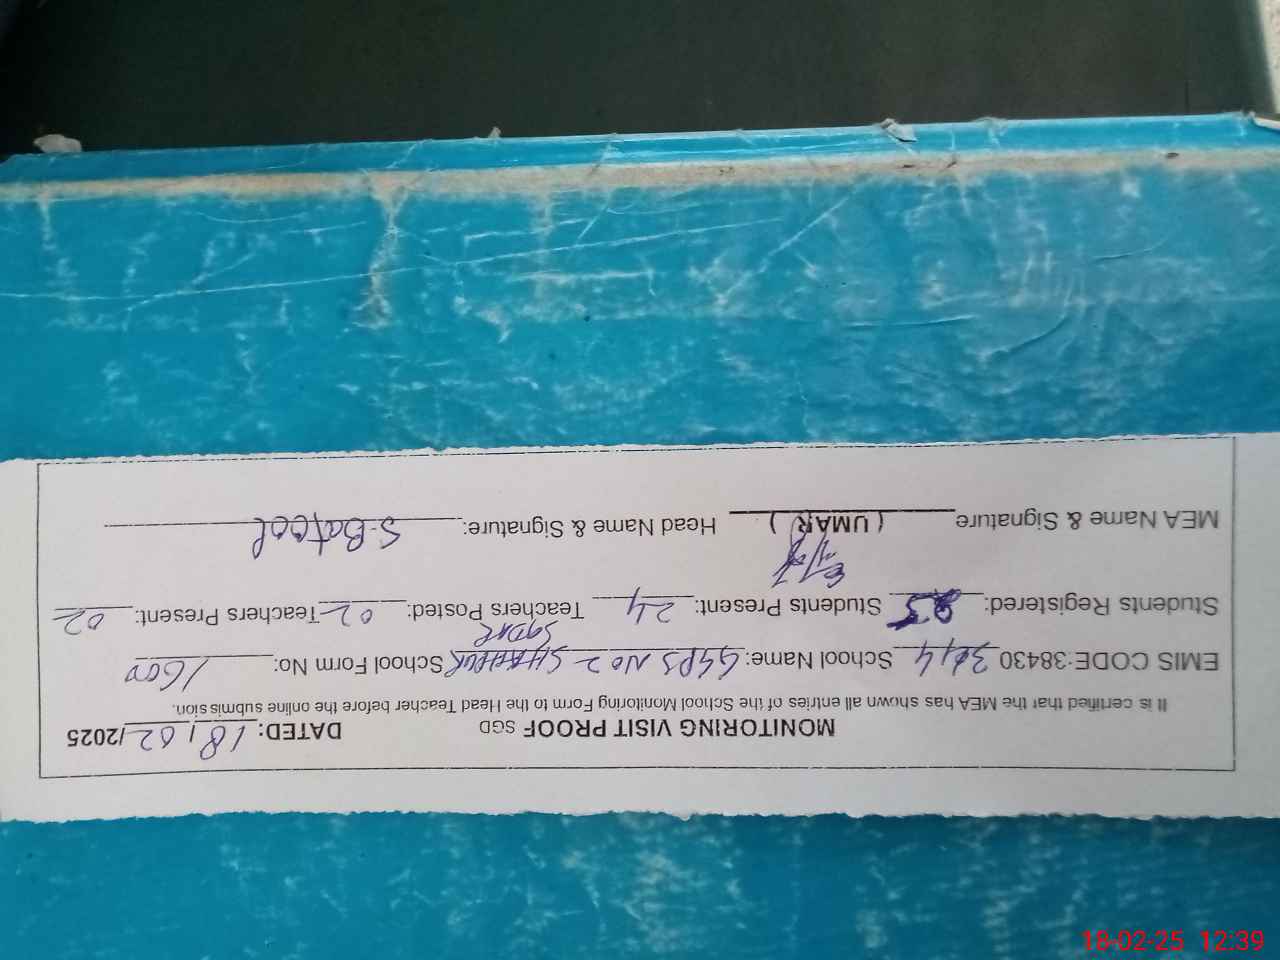 MONITORING VISIT PROOF SGD DATED: 18/02/2025
It is certified that the MEA has shown all entries of the School Monitoring Form to the Head Teacher before the online submission.
EMIS CODE:38430 School Name: GGPS NO 2 SHAHPUR SADAR School Form No: 1600
Students Registered: Students Present: 24 Teachers Posted: 02 Teachers Present: 02
MEA Name & Signature (UMAR) Head Name & Signature: S.Batool
18-02-25 12:39